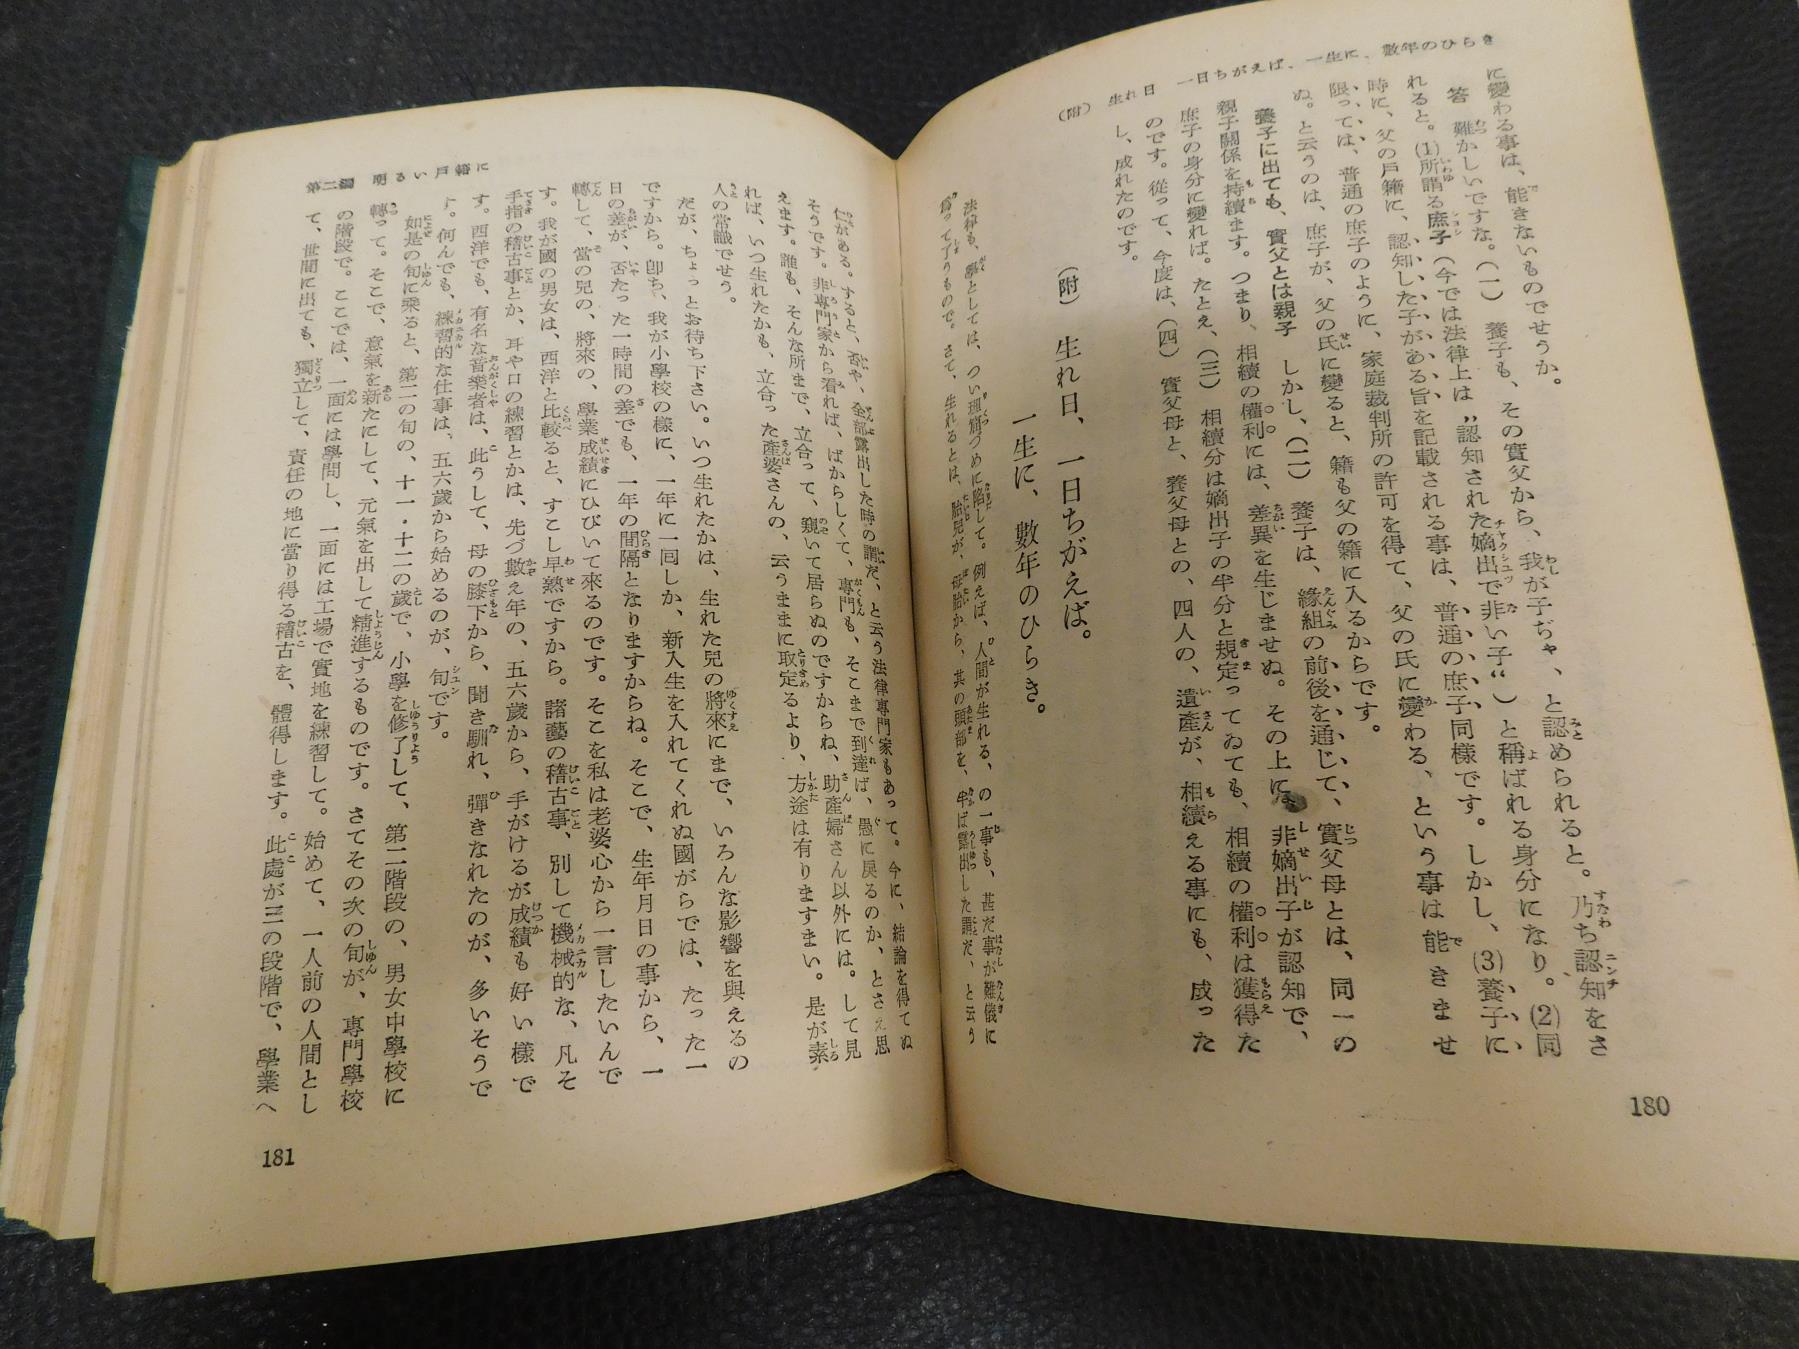 (附) 生れ日 一日ちがえば、一生に、數年のひらき
に變わる事は、能きないものでせうか。
答 難かしいですな。(一) 養子も、その實父から、我が子ぢャ、と認められると。乃ち認知をさ
れると。(1)所謂る庶子(今では法律上は〝認知された嫡出で非い子〟)と稱ばれる身分になり。(2)同
時に、父の戶籍に、認知した子がある旨を記載される事は、普通の庶子同樣です。しかし、(3)養子に
限っては、普通の庶子のように、家庭裁判所の許可を得て、父の氏に變わる、という事は能きませ
ぬ。と云うのは、庶子が、父の氏に變ると、籍も父の籍に入るからです。
養子に出ても、實父とは親子 しかし、(二) 養子は、緣組の前後を通じて、實父母とは、同一の
親子關係を持續ます。つまり、相續の權利には、差異を生じませぬ。その上に、非嫡出子が認知で、
庶子の身分に變れば。たとえ、(三) 相續分は嫡出子の半分と規定ってゐても、相續の權利は獲得た
のです。從って、今度は、(四) 實父母と、養父母との、四人の、遺產が、相續える事にも、成った
し、成れたのです。
(附) 生れ日、一日ちがえば。
一生に、數年のひらき。
法律も、學としては、つい理窟づめに陷して。例えば、人間が生れる、の一事も、甚だ事が難儀に
爲って了うもので。さて、生れるとは、胎兒が、母胎から、其の頭部を、半ば露出した謂だ、と云う
180
第二編 明るい戸籍に
仁がある。すると、否や、全部露出した時の謂だ、と云う法律專門家もあって。今に、結論を得てぬ
そうです。非專門家から看れば、ばからしくて、專門も、そこまで到達ば、愚に戾るのか、とさえ思
えます。誰も、そんな所まで、立合って、覗いて居らぬのですからね、助產婦さん以外には。して見
れば、いつ生れたかも、立合った產婆さんの、云うままに取定るより、方途は有りますまい。是が素
人の常識でせう。
だが、ちょっとお待ち下さい。いつ生れたかは、生れた兒の將來にまで、いろんな影響を與えるの
ですから。卽ち、我が小學校の樣に、一年に一回しか、新入生を入れてくれぬ國がらでは、たった一
日の差が、否たった一時間の差でも、一年の間隔となりますからね。そこで、生年月日の事から、一
轉して、當の兒の、將來の、學業成績にひびいて來るのです。そこを私は老婆心から一言したいんで
す。我が國の男女は、西洋と比較ると、すこし早熟ですから。諸藝の稽古事、別して機械的な、凡そ
手指の稽古事とか、耳や口の練習とかは、先づ數え年の、五六歲から、手がけるが成績も好い樣で
す。西洋でも、有名な音樂者は、此うして、母の膝下から、聞き馴れ、彈きなれたのが、多いそうで
す。何んでも、練習的な仕事は、五六歲から始めるのが、旬です。
如是の旬に乘ると、第二の旬の、十一・十二の歲で、小學を修了して、第二階段の、男女中學校に
轉って。そこで、意氣を新たにして、元氣を出して精進するものです。さてその次の旬が、專門學校
の階段で。ここでは、一面には學問し、一面には工場で實地を練習して。始めて、一人前の人間とし
て、世間に出ても、獨立して、責任の地に當り得る稽古を、體得します。此處が三の段階で、學業へ
181